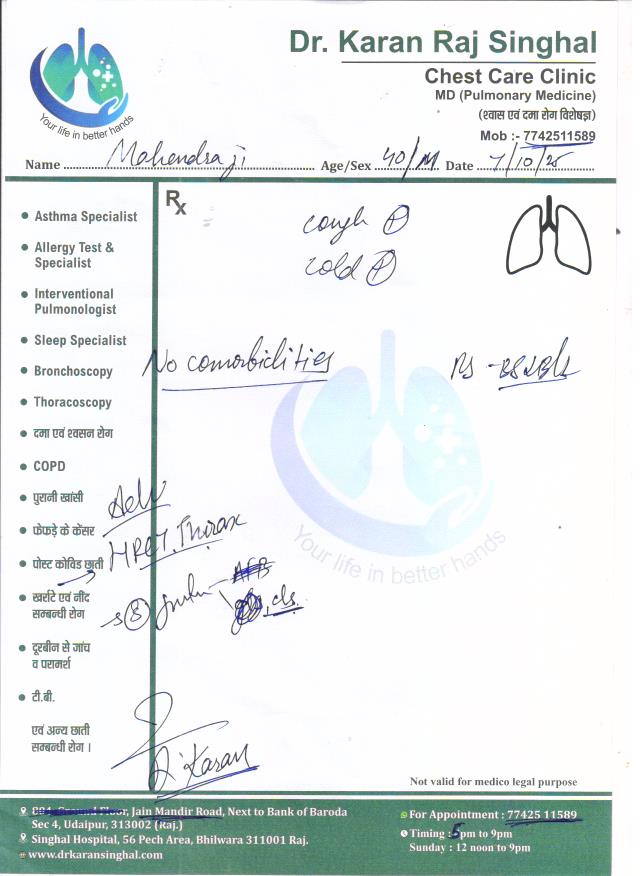 Dr. Karan Raj Singhal
Chest Care Clinic
MD (Pulmonary Medicine)
(श्वास एवं दमा रोग विशेषज्ञ)
Mob :- 7742511589
Your life in better hands
Name Mahendra ji Age/Sex 40/M Date 7/10/25
Rx
cough (P)
cold (P)
No comorbidities
RS -
• Asthma Specialist
• Allergy Test &
Specialist
• Interventional
Pulmonologist
• Sleep Specialist
• Bronchoscopy
• Thoracoscopy
• दमा एवं श्वसन रोग
• COPD
• पुरानी खांसी
• फेफड़े के कैंसर
• पोस्ट कोविड छाती
• खर्राटे एवं नींद
सम्बन्धी रोग
• दूरबीन से जांच
व परामर्श
• टी.बी.
एवं अन्य छाती
सम्बन्धी रोग ।
Adv
HRCT. Thorax
AFB
c/s.
Your life in better hands
Dr. Karan
Not valid for medico legal purpose
Ground Floor, Jain Mandir Road, Next to Bank of Baroda
Sec 4, Udaipur, 313002 (Raj.)
Singhal Hospital, 56 Pech Area, Bhilwara 311001 Raj.
www.drkaransinghal.com
For Appointment : 77425 11589
Timing : 5pm to 9pm
Sunday : 12 noon to 9pm